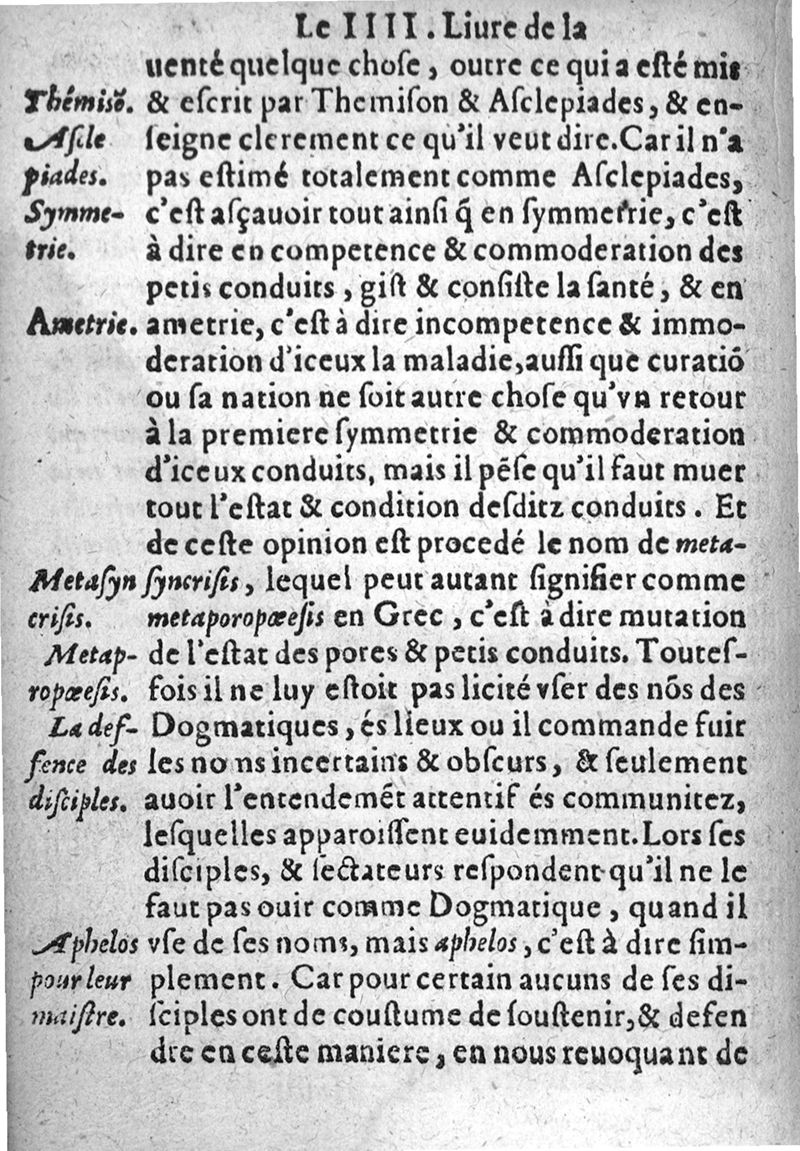 Le IIII. Liure de la
uenté quelque choſe, outre ce qui a eſté mis
Thémisõ. & eſcrit par Themiſon & Aſclepiades, & en-
Aſcle ſeigne clerement ce qu'il veut dire. Car il n'a
piades. pas eſtimé totalement comme Aſclepiades,
Symme- c'eſt aſçauoir tout ainſi q̃ en ſymmetrie, c'eſt
trie. à dire en competence & commoderation des
petis conduits, giſt & conſiſte la ſanté, & en
Ametrie. ametrie, c'eſt à dire incompetence & immo-
deration d'iceux la maladie, auſſi que curatiõ
ou ſa nation ne ſoit autre choſe qu'vn retour
à la premiere ſymmetrie & commoderation
d'iceux conduits, mais il pẽſe qu'il faut muer
tout l'eſtat & condition deſditz conduits. Et
de ceſte opinion eſt procedé le nom de meta-
Metaſyn ſyncriſis, lequel peut autant ſignifier comme
criſis. metaporopœeſis en Grec, c'eſt à dire mutation
Metap- de l'eſtat des pores & petis conduits. Touteſ-
ropœeſis. fois il ne luy eſtoit pas licité vſer des nõs des
La def- Dogmatiques, és lieux ou il commande fuir
fence des les noms incertains & obſcurs, & ſeulement
diſciples. auoir l'entendemẽt attentif és communitez,
leſquelles apparoiſſent euidemment. Lors ſes
diſciples, & ſectateurs reſpondent qu'il ne le
faut pas ouir comme Dogmatique, quand il
Aphelos vſe de ſes noms, mais aphelos, c'eſt à dire ſim-
pour leur plement. Car pour certain aucuns de ſes di-
maiſtre. ſciples ont de couſtume de ſouſtenir, & defen
dre en ceſte maniere, en nous reuoquant de